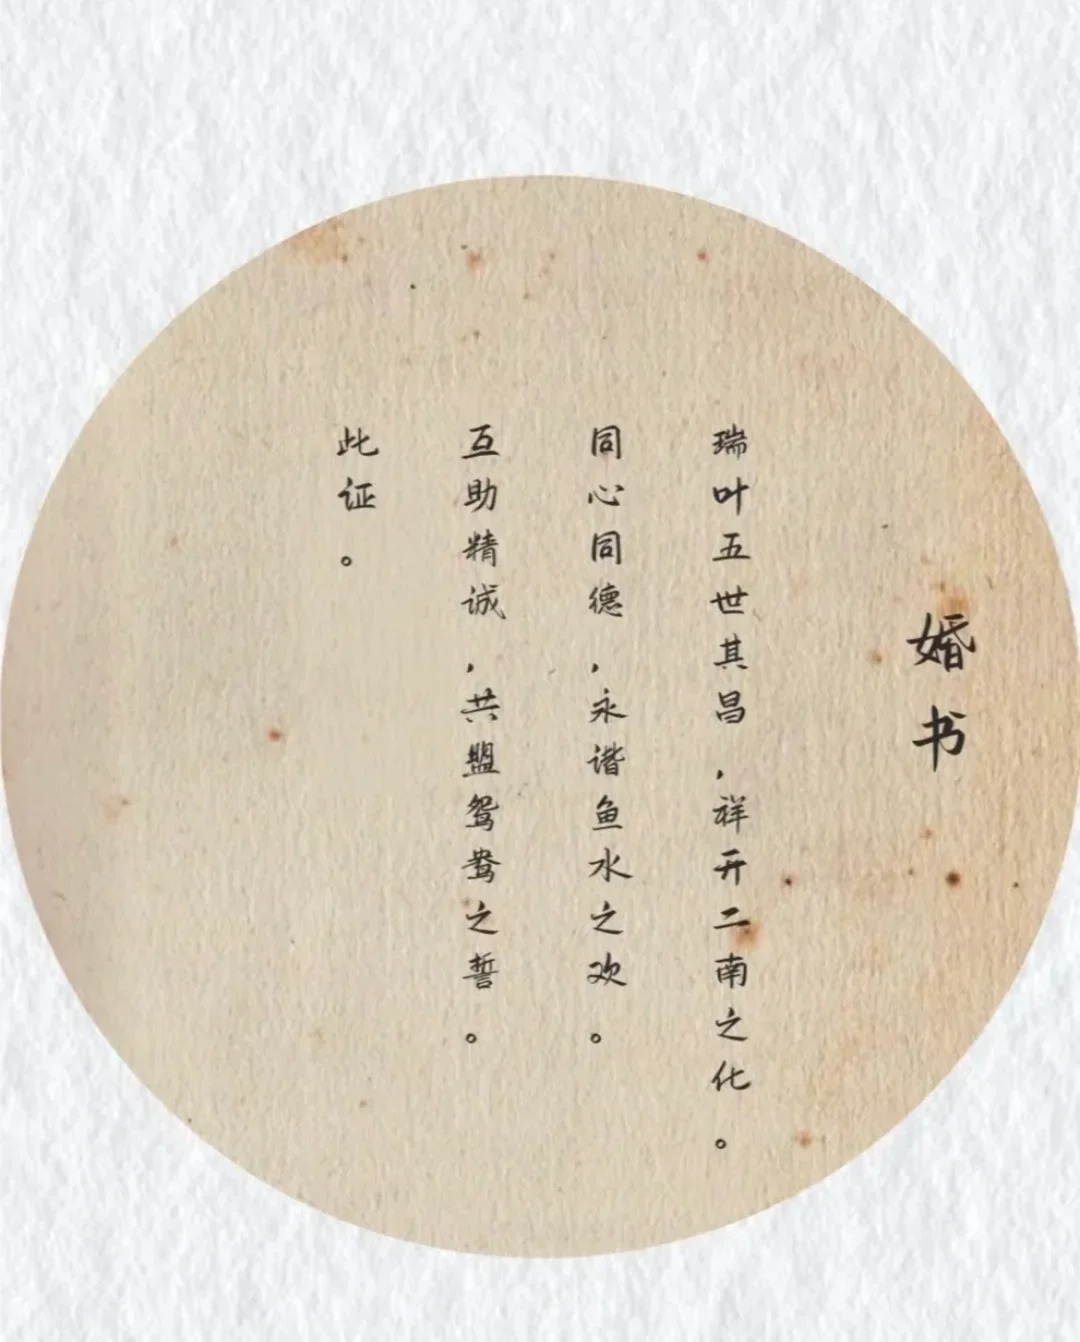 婚书
瑞叶五世其昌，祥开二南之化。
同心同德，永谐鱼水之欢。
互助精诚，共盟鸳鸯之誓。
此证。